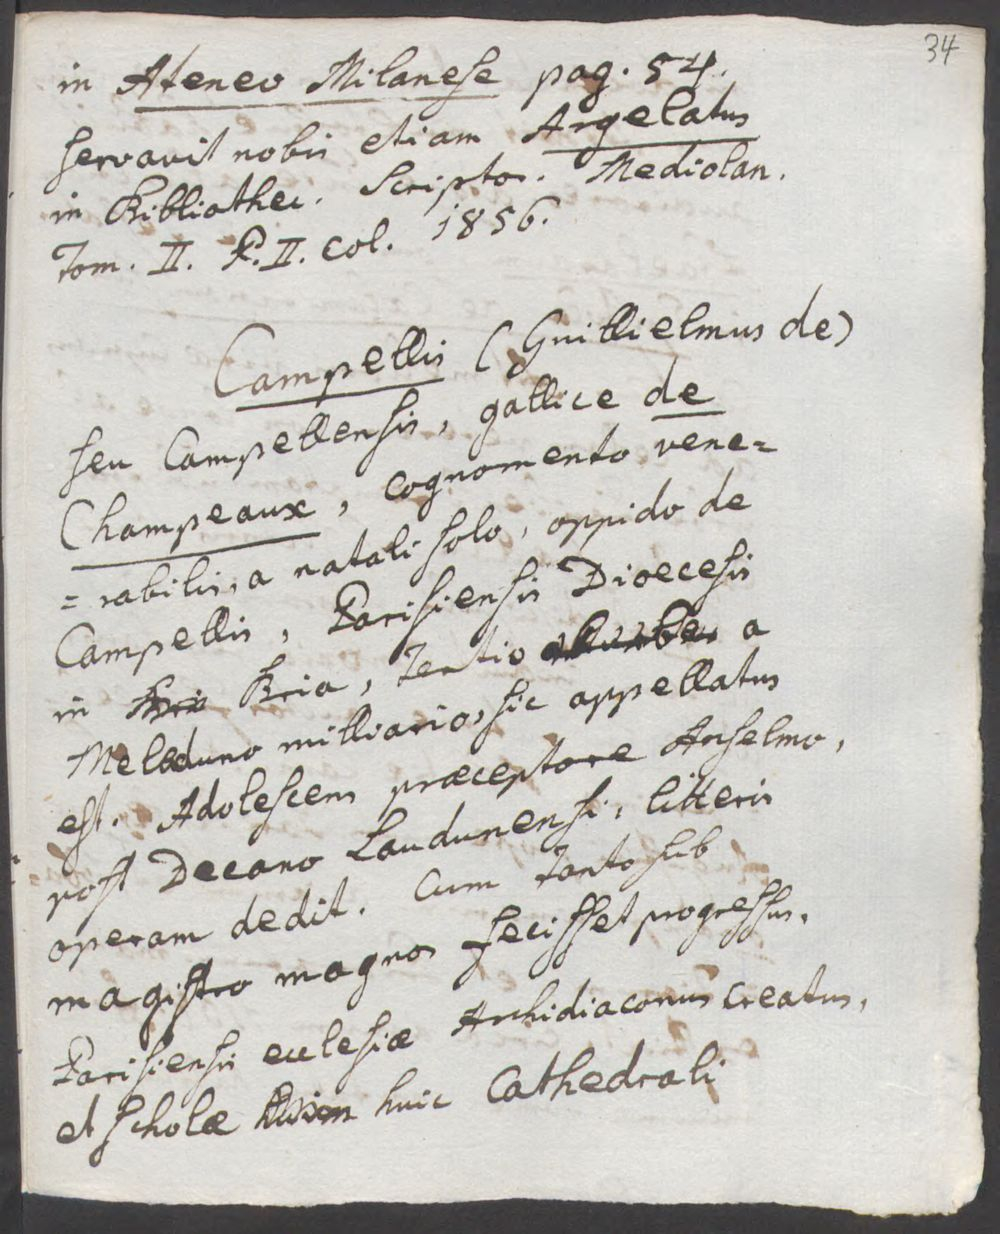 34
in Ateneo Milanese pag. 54.
servavit nobis etiam Argelatus
in Bibliothec. Scriptor. Mediolan.
Tom. II. P. II. col. 1856.
Campellis (Guillielmus de)
seu Campellensis, gallice de
Champeaux, cognomento vene=
=rabilis, a natali solo, oppido de
Campellis, Parisiensis Dioecesis
in Bria, tertio a
Melloduno milliario, sic appellatus
est. Adolescens præceptore Anselmo,
post Decano Laudunensi, litteris
operam dedit. Cum tanto sub
magistro magnos fecisset progressus,
Parisiensis ecclesiæ Archidiaconus creatus,
et scholæ huic Cathedrali